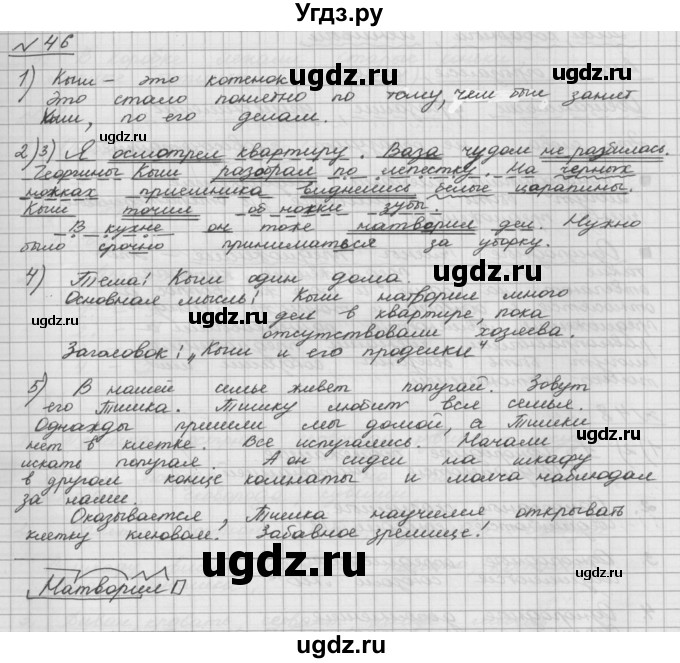 Угдз.ру
№ 46
1) Кыш – это котенок.
Это стало понятно по тому, чем был занят
Кыш, по его делам.
2) 3) Я осмотрел квартиру. Ваза чудом не разбилась.
Георгины Кыш разобрал по лепестку. На черных
ножках приемника виднелись белые царапины.
Кыш точил об ножки зубы.
В кухне он тоже натворил дел. Нужно
было срочно приниматься за уборку.
4) Тема: Кыш один дома.
Основная мысль: Кыш натворил много
дел в квартире, пока
отсутствовали хозяева.
Заголовок: „Кыш и его проделки“
5) В нашей семье живет попугай. Зовут
его Тишка. Тишку любит вся семья.
Однажды пришли мы домой, а Тишки
нет в клетке. Все испугались. Начали
искать попугая. А он сидел на шкафу
в другом конце комнаты и молча наблюдал
за нами.
Оказывается, Тишка научился открывать
клетку клювом. Забавное зрелище!
Натворил
ugdz.ru
ugdz.ru
ugdz.ru
ugdz.ru
ugdz.ru
ugdz.ru
ugdz.ru
ugdz.ru
ugdz.ru
ugdz.ru
ugdz.ru
ugdz.ru
ugdz.ru